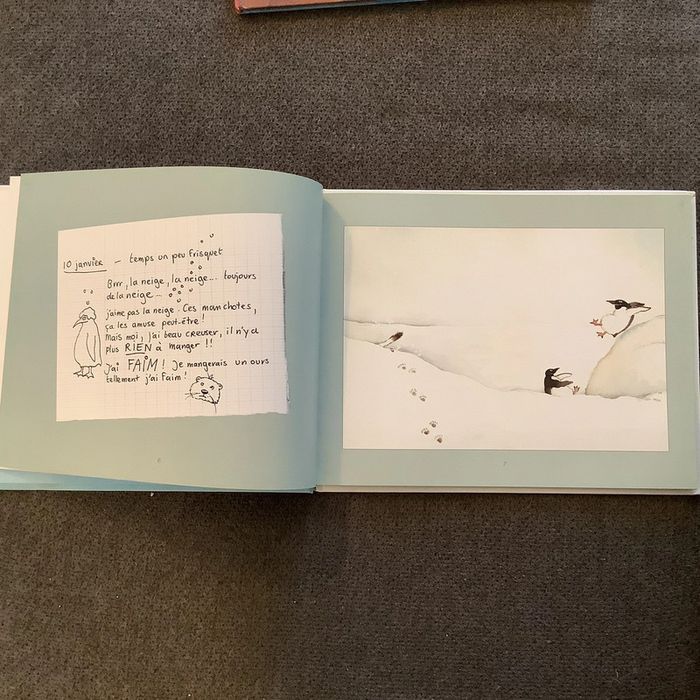 10 janvier – temps un peu frisquet
Brrr, la neige, la neige... toujours
de la neige...
j'aime pas la neige. Ces manchotes,
ça les amuse peut-être!
Mais moi, j'ai beau creuser, il n'y a
plus RIEN à manger!!
J'ai FAIM! Je mangerais un ours
tellement j'ai faim!
6
7